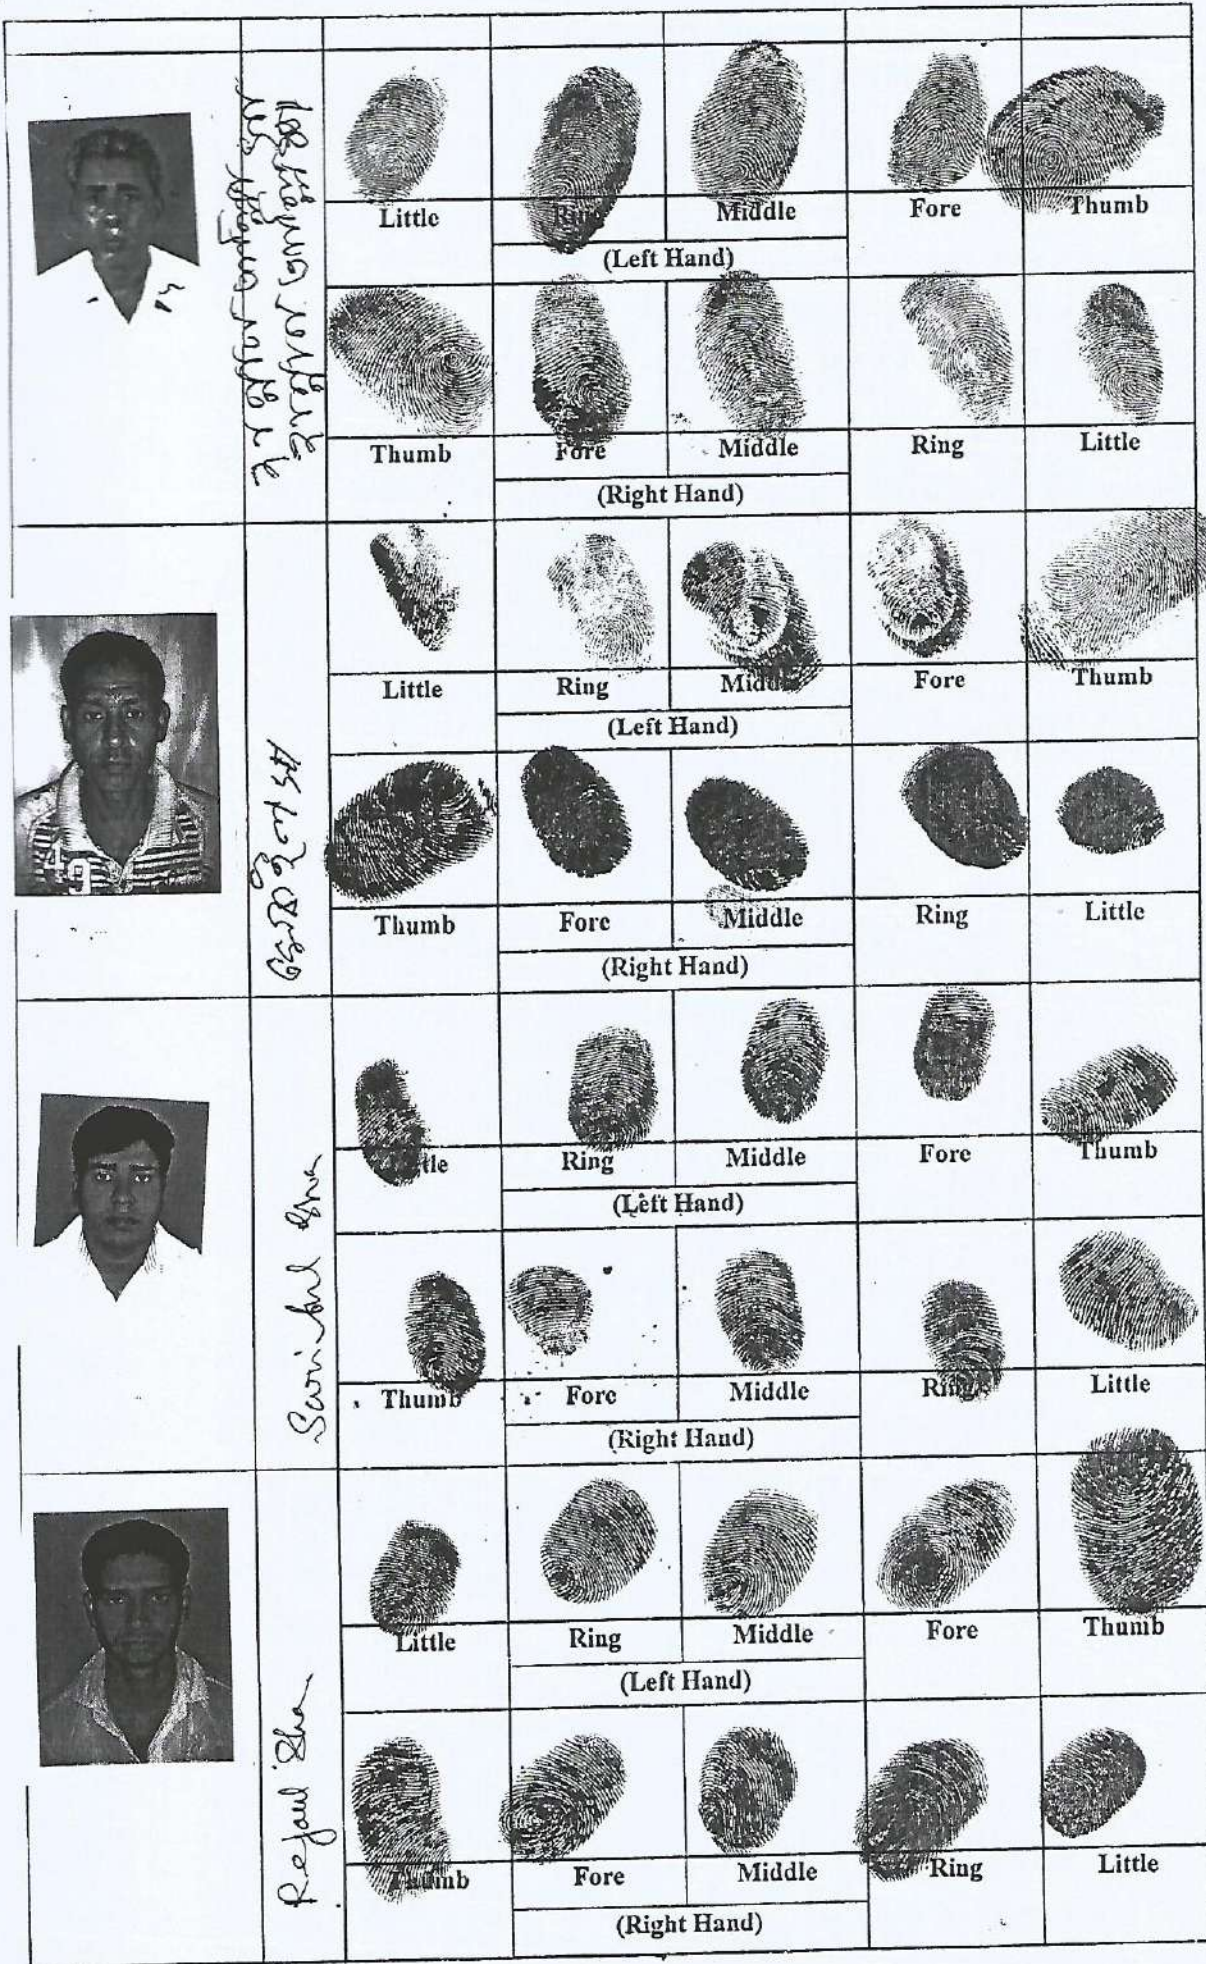 Little Ring Middle Fore Thumb
(Left Hand)
Thumb Fore Middle Ring Little
(Right Hand)
Little Ring Middle Fore Thumb
(Left Hand)
Thumb Fore Middle Ring Little
(Right Hand)
Little Ring Middle Fore Thumb
(Left Hand)
Thumb Fore Middle Ring Little
(Right Hand)
Rejaul Sha
Little Ring Middle Fore Thumb
(Left Hand)
Thumb Fore Middle Ring Little
(Right Hand)